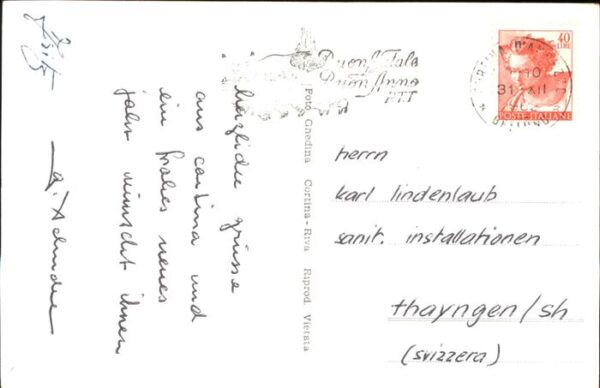 Buon Natale
Buon Anno
PTT
40
LIRE
POSTE ITALIANE
CORTINA D'AMPEZZO
31 XII
BELLUNO
herzliche grüsse
aus cortina und
ein frohes neues
jahr wünscht ihnen
Foto Ghedina Cortina - Riva Riprod. Vietata
herrn
karl lindenlaub
sanit. installationen
thayngen/sh
(svizzera)